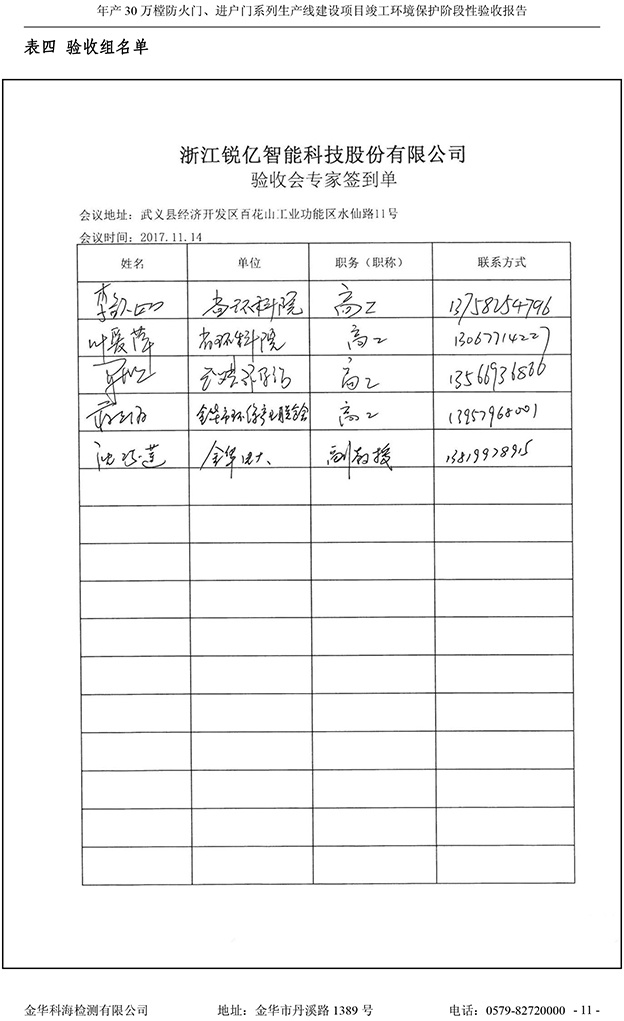 年产 30 万樘防火门、进户门系列生产线建设项目竣工环境保护阶段性验收报告
表四 验收组名单
浙江锐亿智能科技股份有限公司
验收会专家签到单
会议地址：武义县经济开发区百花山工业功能区水仙路11号
会议时间：2017.11.14
姓名 单位 职务（职称） 联系方式
省环科院 高工 13758254796
叶爱萍 省环科院 高工 13067714227
高工 13566936866
金华市环保产业联合会 高工 13957968001
金华电大 副教授 13819978915
金华科海检测有限公司 地址：金华市丹溪路 1389 号 电话：0579-82720000 - 11 -